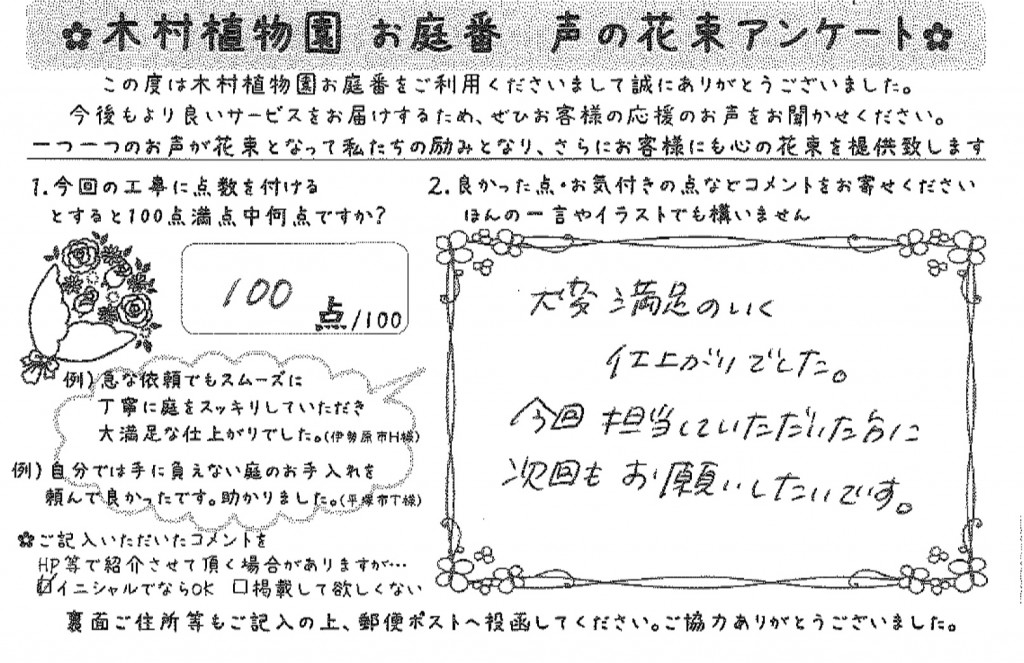 ✿木村植物園 お庭番 声の花束アンケート✿
この度は木村植物園お庭番をご利用くださいまして誠にありがとうございました。
今後もより良いサービスをお届けするため、ぜひお客様の応援のお声をお聞かせください。
一つ一つのお声が花束となって私たちの励みとなり、さらにお客様にも心の花束を提供致します
1.今回の工事に点数を付ける
とすると100点満点中何点ですか?
100
点/100
例)急な依頼でもスムーズに
丁寧に庭をスッキリしていただき
大満足な仕上がりでした。(伊勢原市H様)
例)自分では手に負えない庭のお手入れを
頼んで良かったです。助かりました。(平塚市T様)
✿ご記入いただいたコメントを
HP等で紹介させて頂く場合がありますが…
☑イニシャルでならOK □掲載して欲しくない
2.良かった点・お気付きの点などコメントをお寄せください
ほんの一言やイラストでも構いません
大変満足のいく
仕上がりでした。
今回担当していただいた方に
次回もお願いしたいです。
裏面ご住所等もご記入の上、郵便ポストへ投函してください。ご協力ありがとうございました。